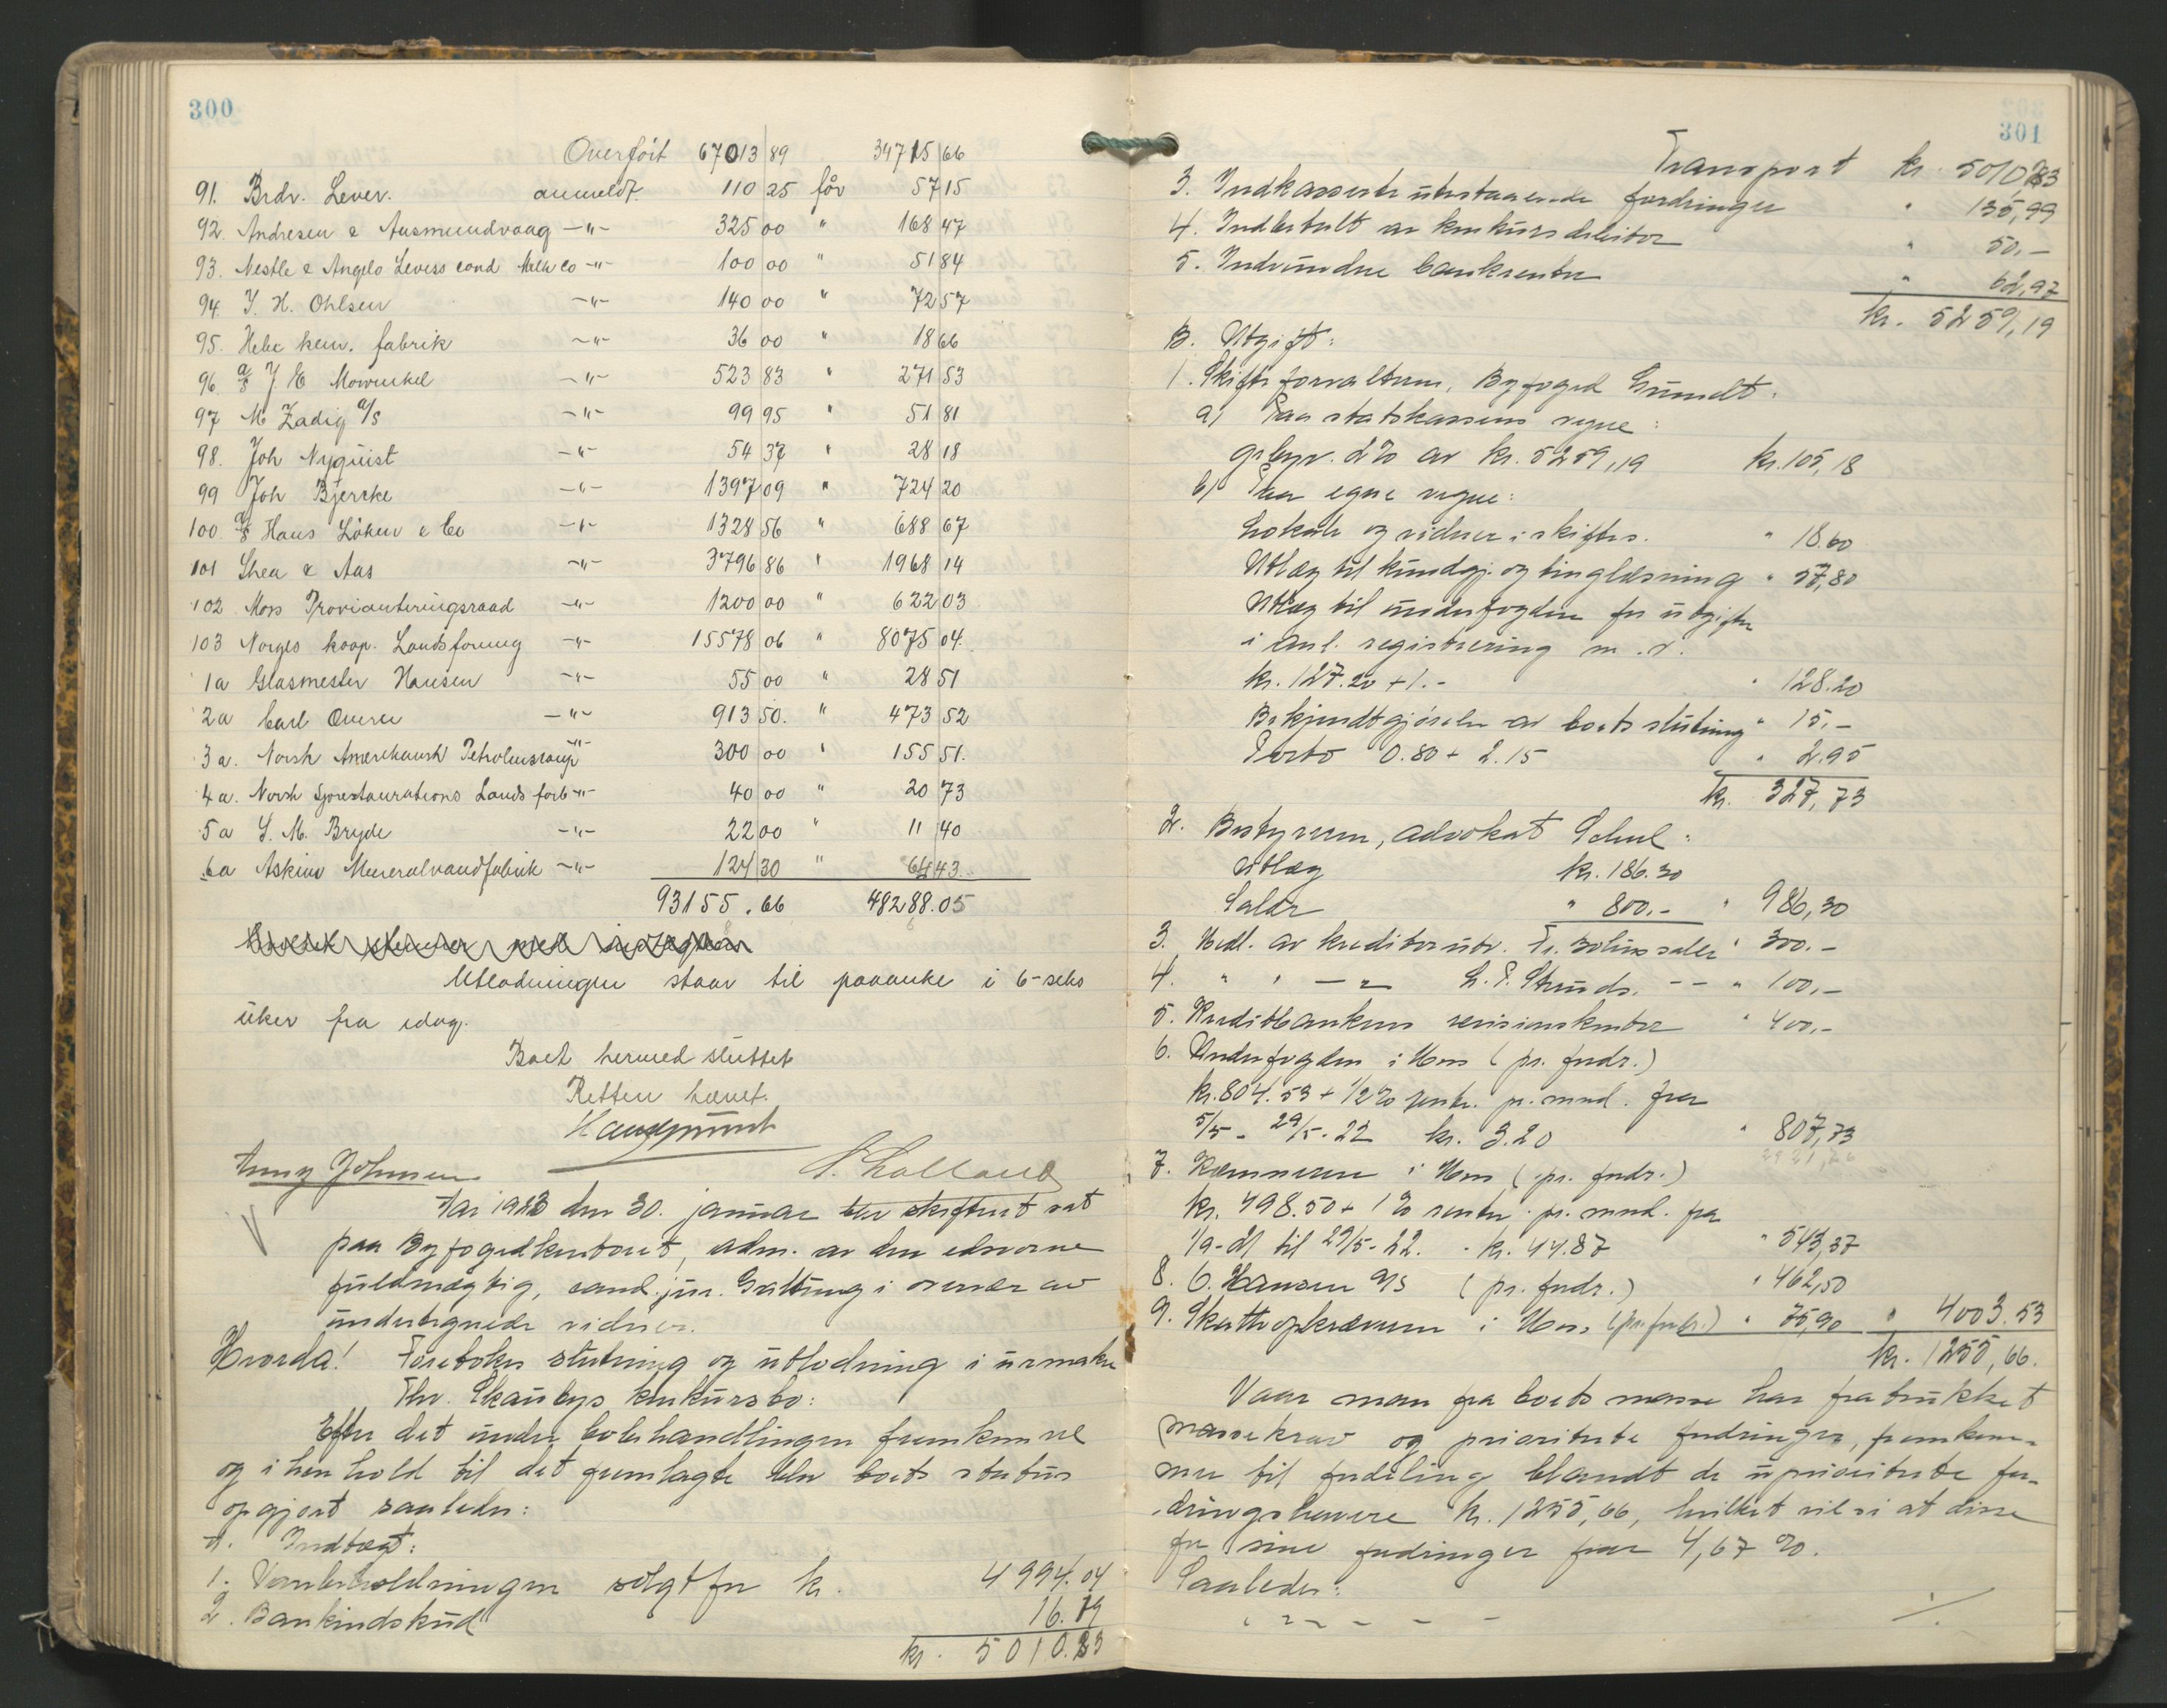 300
Overført 67013 89 34715 66
91. Brdr. Lever. anmeldt. 110 25 får 57 15
92. Andresen & Aasmundvaag -"- 325 00 " 168 47
93. Nestle & Angelo Leviss cond Milk Co -"- 100 00 " 51 84
94 J. H. Ohlsen -"- 140 00 " 72 57
95. Hebe kem. fabrik -"- 36 00 " 18 66
96 a/s J E Mowinkel -"- 523 83 " 271 53
97 M Zadig a/s -"- 99 95 " 51 81
98. Joh Nyquist -"- 54 37 " 28 18
99 Joh Bjercke -"- 1397 09 " 724 20
100. a/s Hans Löken & Co -"- 1328 56 " 688 67
101 Shea & Aas -"- 3796 86 " 1968 14
102 Moss Provianteringsraad -"- 1200 00 " 622 03
103 Norges koop. Landsforening -"- 15578 06 " 8075 04.
1a Glasmester Hansen -"- 55 00 " 28 51
2a Carl Overer -"- 913 50. " 473 52
3a. Norsk Amerikansk Petroleumscomp -"- 300 00 " 155 51.
4a. Norsk Sjorestaurations Lands forb -"- 40 00 " 20 73
5a S. M. Bryde -"- 22 00 " 11 40
6a Askim Mineralvandfabrik -"- 124 30 " 64 43
93155.66 48288.05
Utlodningen staar til paaanke i 6-seks
uker fra idag.
Boet hermed sluttet
Retten hævet.
Haugrund
Anny Johnsen S. Lolland
Aar 1923 den 30. januar blev skifteret sat
paa Byfogedkontoret, adm. av den edsvorne
fuldmægtig, cand. jur. Galtung i overvær av
undertegnede vidner.
Hvorda! Foretokes slutning og utlodning i urmaker
Thv. Skaubys konkursbo:
Efter det under bobehandlingen fremkomne
og i henhold til det fremlagte blev boets status
opgjort saaledes:
A. Indtægt:
1. Varebeholdningen solgt for kr. 4994.04
2. Bankindskud 16.19
kr. 5010.23
301
Transport kr. 5010,23
3. Indkasserte utestaaende fordringer " 135,99
4. Indbetalt av konkursdebitor " 50,-
5. Indvundne bankrenter " 62,97
kr. 5259,19
B. Utgift:
1. Skifteforvalteren, Byfoged Grundt.
a) Paa statskassens regne:
gebyr. 2% av kr. 5259,19 kr. 105,18
b) Paa egne regne:
Lokale og vidner i skiftes. " 18.60
Utlæg til kundgj. og tinglæsning " 57,80
Utlæg til underfogden for utgifter
i anl. registrering m.v.
kr. 127.20 + 1.- " 128.20
Bekjendtgjørelse av boets slutning " 15,-
Porto 0.80 + 2.15 " 2.95
kr. 327,73
2. Bestyreren, advokat Schul:
Utlæg kr. 186.30
Salær " 800.- " 986,30
3. Medl. av kreditorutv. Fr. salær " 300.-
4. " " - " - L. P. Strunds. - - " 100,-
5. Kreditbankens revisionskontor " 400,-
6. Underfogden i Moss (pr. fordr.)
kr. 804.53 + 1/2% rente. pr. mnd. fra
5/5 - 29/5-22 kr. 3.20 " 807,73
7. Kæmneren i Moss (pr. fordr.)
kr. 498.50 + 1% renter pr. mnd. fra
1/9-21 til 29/5-22. - kr. 44.87 " 543,37
8. C. Hansen A/S (pr. fordr.) " 462,50
9. Skatteopkræveren i Moss (pr. fordr.) " 75,90 " 4003.53
kr. 1255,66.
Naar man fra boets masse har fratrukket
massekrav og prioriterte fordringer, fremkom-
mer til fordeling blandt de uprioriterte for-
dringshavere kr. 1255,66, hvilket vil si at disse
for sine fordringer faar 4,67 %.
Saaledes: